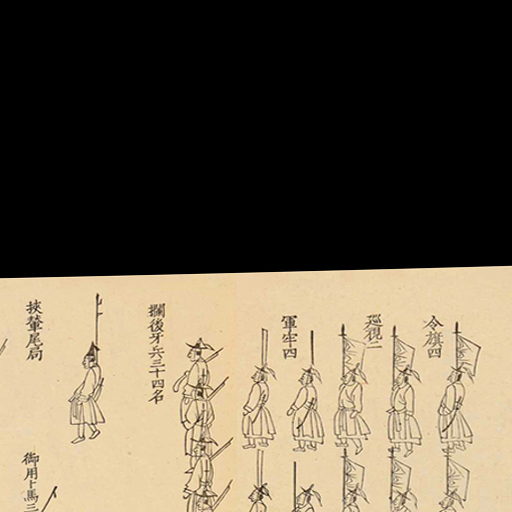 令旗四
巡視二
軍牢四
攔後牙兵三十四名
挾輦尾局
御用卜馬三